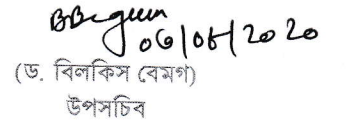 BBegum
06/08/2020
(ড. বিলকিস বেমগ)
উপসচিব